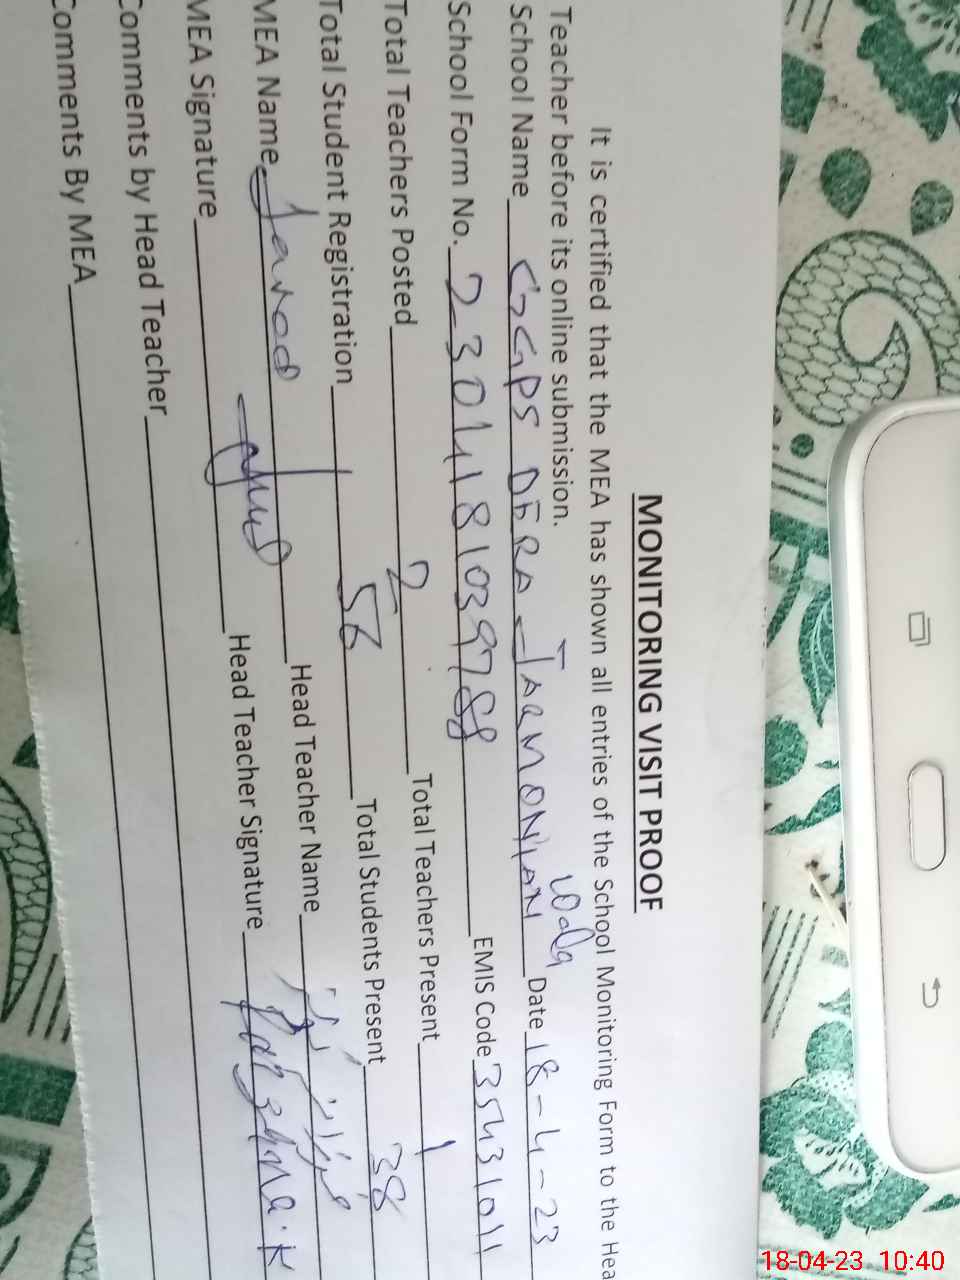 MONITORING VISIT PROOF
It is certified that the MEA has shown all entries of the School Monitoring Form to the Hea
Teacher before its online submission.
School Name GGPS DERA Date 18-4-23
School Form No. 2304181039788 EMIS Code 35431011
Total Teachers Posted 2 Total Teachers Present 1
Total Student Registration 56 Total Students Present 38
MEA Name Javed Head Teacher Name
MEA Signature Head Teacher Signature
Comments by Head Teacher
Comments By MEA
18-04-23 10:40